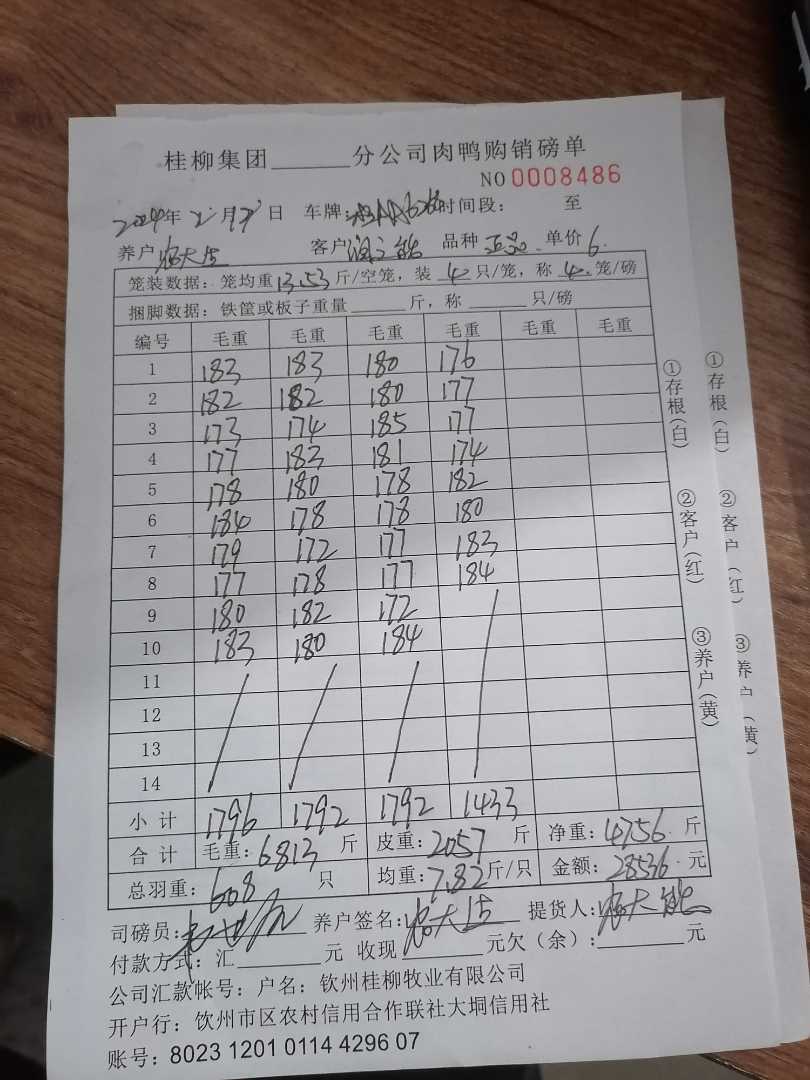 桂柳集团______分公司肉鸭购销磅单
NO 0008486
2024年2月7日 车牌: 时间段: 至
养户 客户 品种 正品 单价6
笼装数据:笼均重13.53斤/空笼,装4只/笼,称4笼/磅
捆脚数据:铁筐或板子重量______斤,称______只/磅
编号 毛重 毛重 毛重 毛重 毛重 毛重
1 183 183 180 176
2 182 182 180 177
3 173 174 185 177
4 177 183 181 174
5 178 180 178 182
6 184 178 178 180
7 179 172 177 183
8 177 178 177 184
9 180 182 172
10 183 180 184
11
12
13
14
小计 1796 1792 1792 1433
合计 毛重:6813斤 皮重:2057斤 净重:4756斤
总羽重:608只 均重:7.82斤/只 金额:28536元
司磅员: 养户签名: 提货人:
付款方式:汇______元 收现______元欠(余):______元
公司汇款帐号:户名:钦州桂柳牧业有限公司
开户行:钦州市区农村信用合作联社大垌信用社
账号:8023 1201 0114 4296 07
①存根(白)
②客户(红)
③养户(黄)
①存根(白)
②客户(红)
③养户(黄)